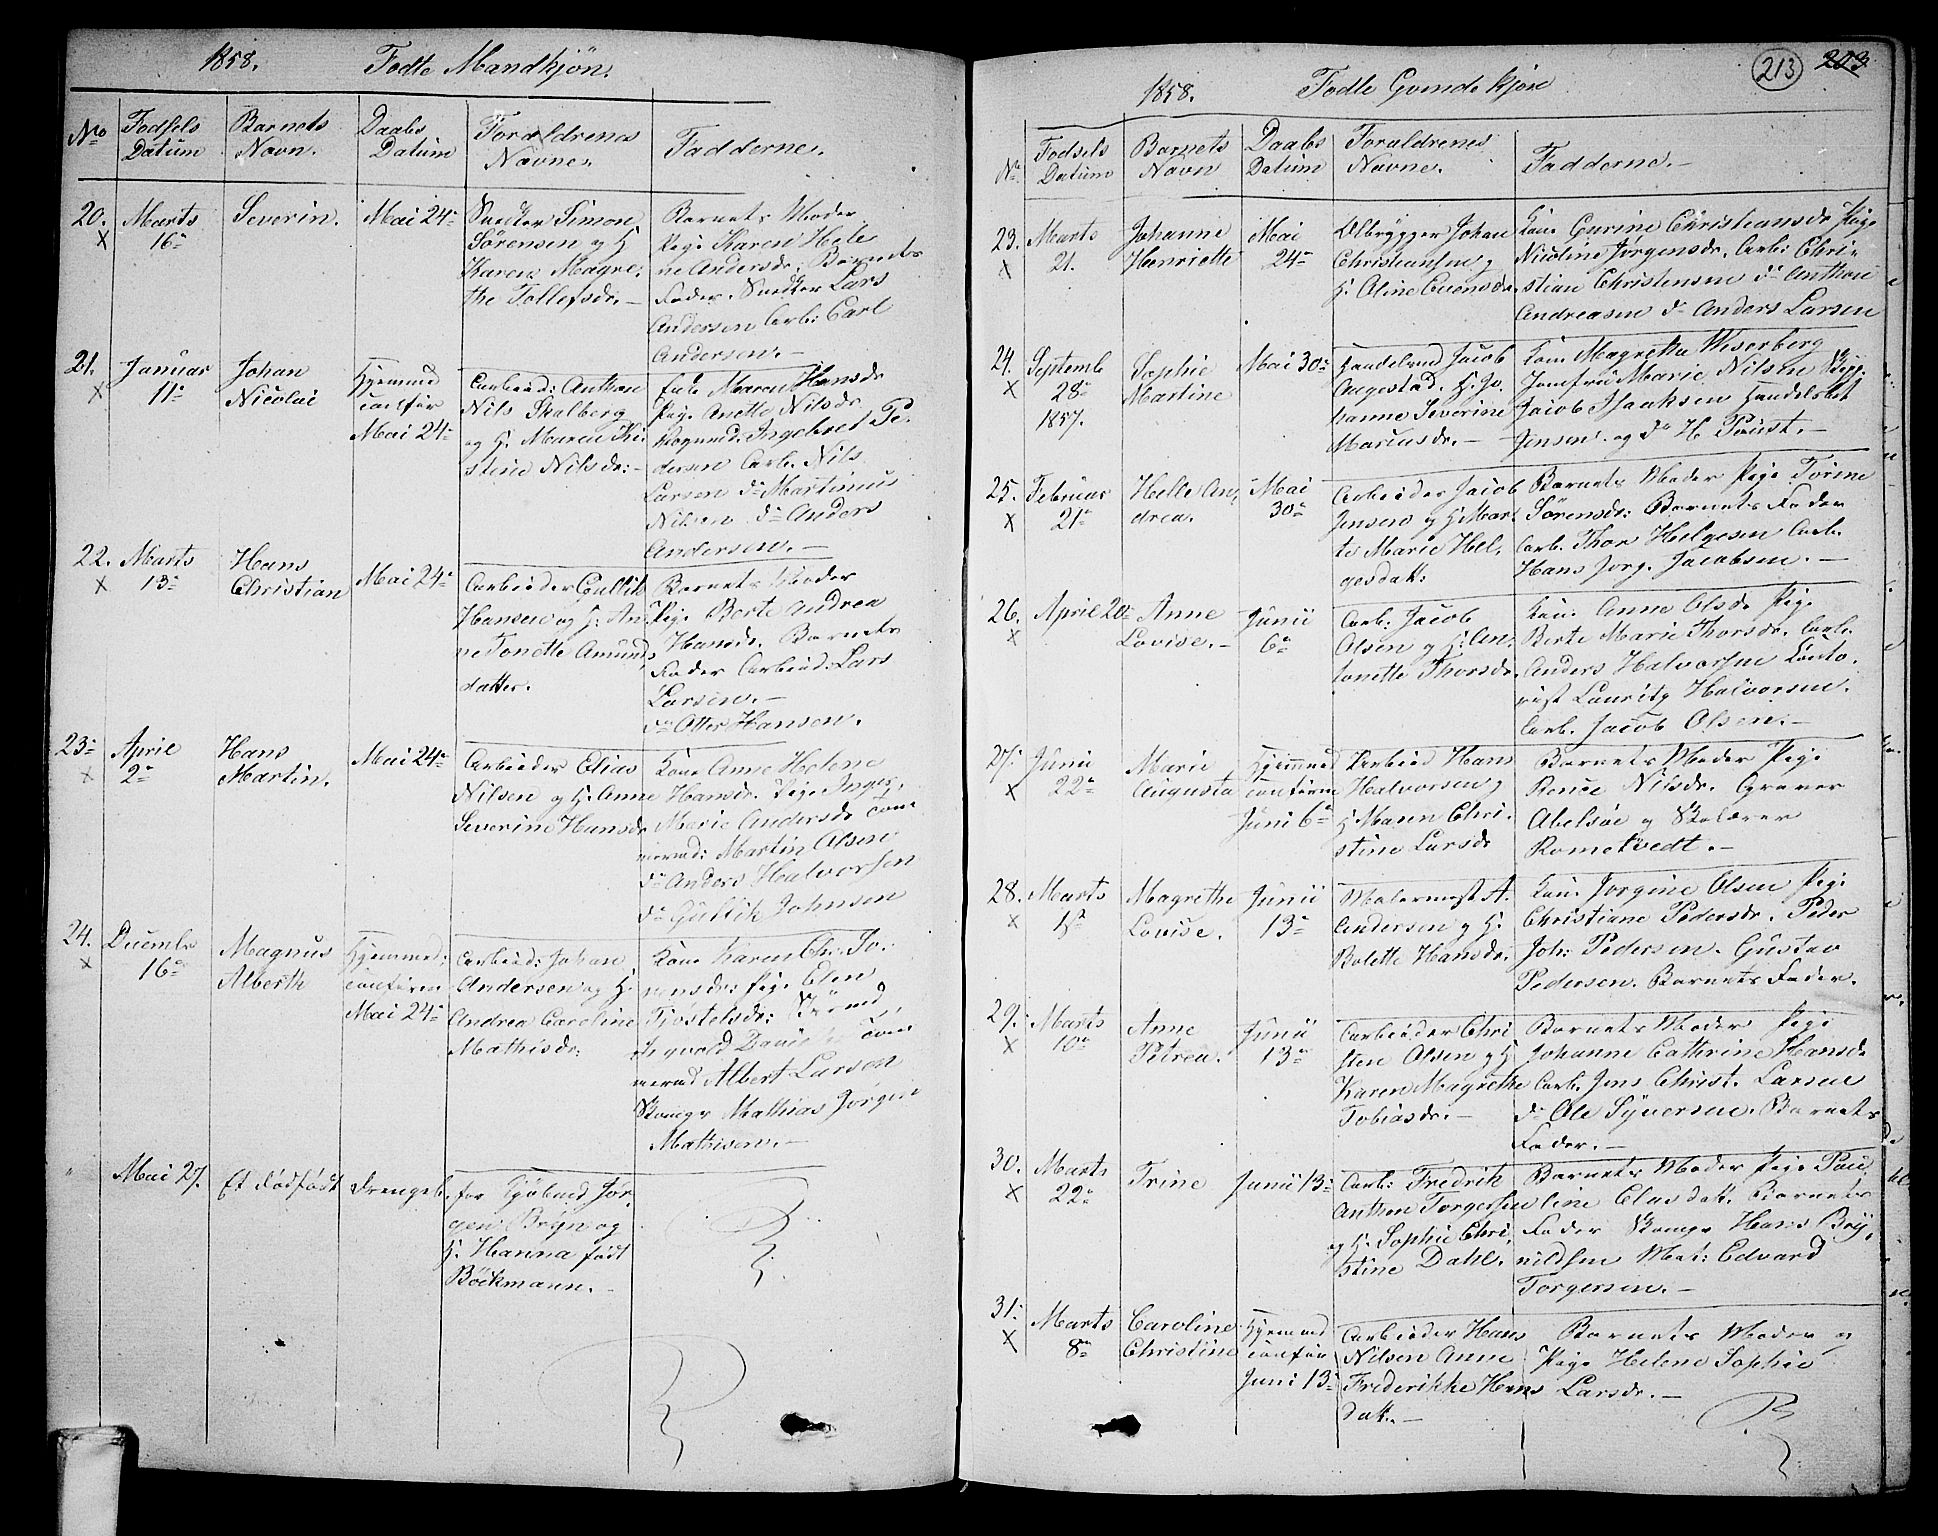 1858. Fodte Mandkjön.
No
Fodsels Datum
Barnets Navn.
Daabs Datum
Foraldrenes Navne.
Fadderne.
20. Marts 16de
Severin.
Mai 24de
Snedker Simon
Sörensen og H.
Karen Magre,
the Tollefsdr. –
Barnets Moder
Pige Karen Hele
ne Andersdr. Barnets
Fader. Snedker Lars
Andersen Arb: Carl
Andersen. –
21. Januar 11te
Johan
Nicolai
Hjemmed
confir
Mai 24de
Arbeid: Anthon
Nils Skalberg
og H. Maren Ki
stine Nilsdr: –
Enke Maren Hansdr
Pige Anette Nilsdr
Ingebret Pe,
dersen Arb. Nils
Larsen do Martinus
Nilsen do Anders
Andersen. –
22. Marts 13de
Hans
Christian
Mai 24de
Arbeider Gullik
Hansen og H: An,
ne Tonette Amunds
datter.
Barnets Moder
Pige Berte Andrea
Hansdr. Barnets
Fader Arbeid: Lars
Larsen. –
do Otter Hansen.
23de April 2de
Hans
Martin.
Mai 24de
Arbeider Elias
Nilsen og H. Anne
Severine Hansdr
Kone Anne Helene
Hansdr. Pige Inger
Marie Andersdr Tøm
mermd: Martin Olsen
do Anders Halvorsen
do Gullik Johnsen
24. Decembr 16de
Magnus
Alberth
Hjemmed:
confirm
Mai 24de
Arbeid: Johan
Andersen og H.
Andrea Caroline
Mathisdr
Kone Karen Chr. Jo,
nensdr: Pige Elen
Tjostelsdr:
Tøm
mermd Albert Larsen
Skomgr Mathias Jörgen
Mathisen. –
Mai 27.
Et dödfödt
Drengeb.
for Jör
gen Bryn og
H. Hanna födt
Böckmann. –
213 203
1858. Fodte Qvindekjön
No
Fodsels Datum
Barnets Navn
Daabs Datum
Foraldrenes Navne.
Fadderne. –
23. Marts 21.
Johanne
Henriette
Mai
24de
Ølbrygger Johan
Christiansen og
H. Oline Evensdr.
Kone Gurine Christiansdr Pige
Nicoline Jorgensdr. Arb: Chri-
stian Christensen do Anthon
Andreasen do Anders Larsen
24. Septemb 28de 1857.
Sophie
Martine
Mai 30de
Handelsmd Jacob
Augestad. H. Jo,
hanne Severine
Marcusdr. –
Kone Magrethe Wiserberg
Jomfru Marie Nilsen
Jacob Isaksen Handelsbet
Jensen. og do H. Paust. –
25. Februar 21de
Helle An,
drea.
Mai
30de
Arbeider Jacob
Jensen og H: Mar,
te Marie Hel,
gesdatt:
Barnets Moder Pige Torine
Sörensdr: Barnets Fader
Arb. Thor Helgesen Arb.
Hans Jorg. Jacobsen. –
26. April 20de
Anne
Lovise. –
Junii
6de
Arb: Jacob
Olsen og H: An,
tonette Thorsdr.
Kone Anne Olsdr Pige
Berte Marie Thorsdr. Arb.
Anders Halvorsen Konto,
rist Lauritz Halvorsen.
Arb. Jacob Olsen. –
27. Junii 22de
Marie
Augusta
Hjemmed
confirm
Juni 6de
Arbeid Hans
Halvorsen og
H. Maren Chri,
stine Larsdr
Barnets Moder Pige
Nilsdr. Graver
Abelsöe og Skolærer
Rometvedt. –
28. Marts 1ste
Magrethe
Lovise.
Junii
13de
Malermest A.
Andersen og H.
Bolette Hansdr.
Kone Jorgine Olsen Pige
Christiane Pedersdr. Peder
Joh: Pedersen. Gustav
Pedersen. Barnets Fader.
29. Marts 10de
Anne
Petrea.
Junii
13de
Arbeider Chri
sten Olsen og H
Karen Magrethe
Tobiasdr. –
Barnets Moder Pige
Johanne Cathrine Hansdr
Arb. Jens Christ. Larsen
do Ole Syversen. Barnets
Fader. –
30. Marts 22de
Trine
Junii 13de
Arb: Fredrik
Anthon Torgersen
og H. Sophie Chri,
stine Dahl.
Barnets Moder Pige Pau
line Elas datt. Barnets
Fader Skomgr Hans Bry,
nildsen Mat: Edvard
Torgersen. –
31. Marts 8de
Caroline
Christine
Hjemmed
confir
Juni 13de
Arbeider Hans
Nilsen Anne
Frederikke Hans
datt. –
Barnets Moder og
Pige Helene Sophie
Larsdr. –